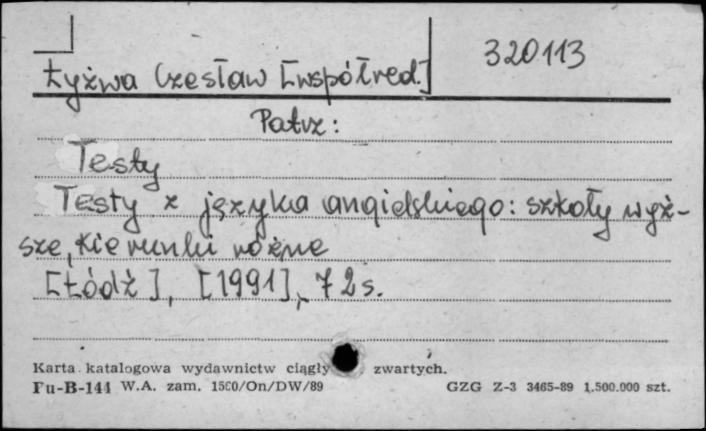 320113
Łyżwa Czesław [współred.]
Patrz:
Testy
Testy z języka angielskiego: szkoły wyż-
sze, kierunki różne
[Łódź], [1991], 72 s.
Karta katalogowa wydawnictw ciągły zwartych.
Pu-B-144 W.A. zam. 1560/On/DW/89 GZG Z-3 3465-89 1.500.000 szt.